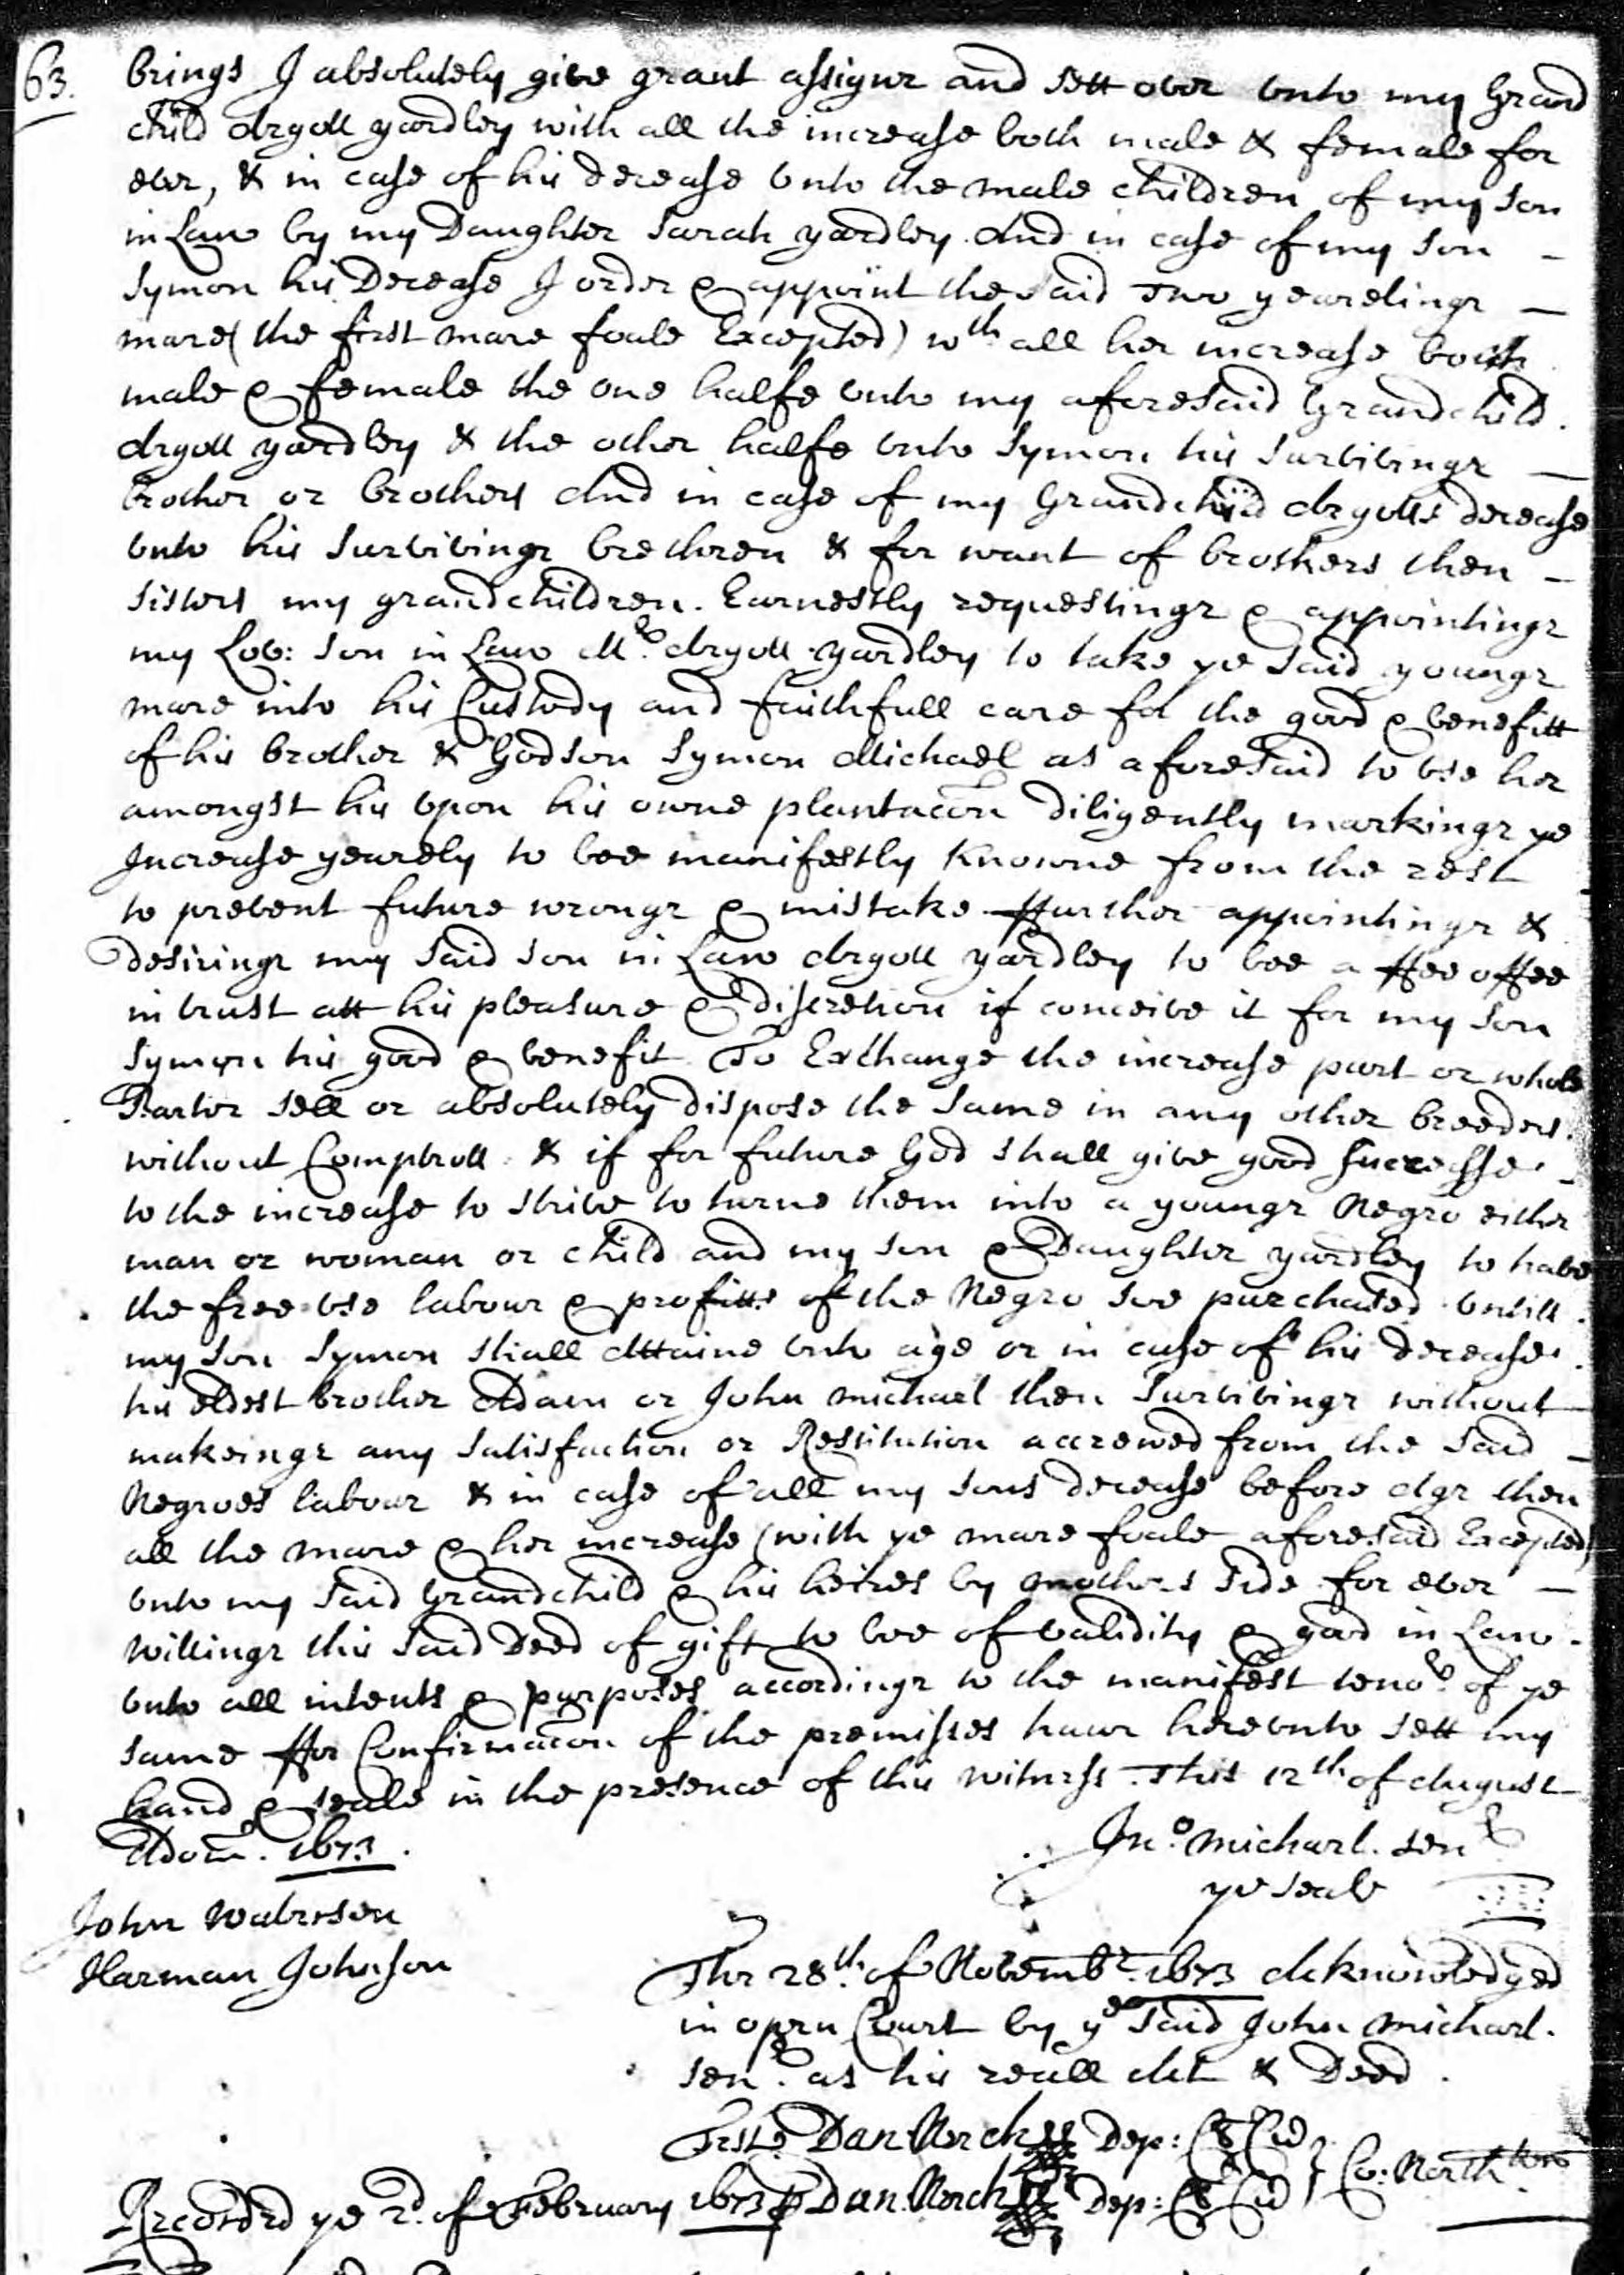 63.
brings I absolutely give grant assigne and sett over unto my Grand
child Argoll yardley with all the increase both male & female for
ever, & in case of his decease unto the male children of my son
in Law by my Daughter Sarah yardley. And in case of my son -
Symon his Decease I order & appoint the said Two yearelinge -
mare (the first mare foale Excepted) wth all her increase both
male & female the one halfe unto my aforesaid Grandchild.
Argoll yardley & the other halfe unto Symon his survivinge -
brother or brothers And in case of my Grandchild Argolls decease
unto his survivinge brethren & for want of brothers then -
sisters my grandchildren. Earnestly requestinge & appointinge
my Lov: son in Law Mr. Argoll yardley to take ye said younge
mare into his Custody and faithfull care for the good & benefitt
of his brother & Godson Symon Michael as aforesaid to use her
amongst his upon his owne plantacon diligently markinge ye
Increase yearely to bee manifestly knowne from the rest
to prevent future wronge & mistake ffurther appointinge &
desiringe my said son in Law Argoll yardley to bee a ffeeoffee
in trust att his pleasure & discretion if conceive it for my son
Symon his good & benefit To Exchange the increase part or whole
Barter sell or absolutely dispose the same in any other breeders.
without Comptroll & if for future God shall give good successe -
to the increase to strive to turne them into a younge Negro either
man or woman or child and my son & Daughter yardley to have
the free use labour & profitts of the Negro soe purchased untill
my son Symon shall Attaine unto age or in case of his decease
his eldest brother Adam or John michael then survivinge without
makeinge any satisfaction or Restitution accrewed from the said -
Negroes labour & in case of all my sons decease before Age then
all the mare & her increase (with ye mare foale aforesaid Excepted)
unto my said Grandchild & his heires by mothers side for ever -
willinge this said Deed of gift to bee of validity & good in Law.
unto all intents & purposes accordinge to the manifest tenor. of ye
same ffor Confirmacon of the premisses have hereunto sett my
hand & seale in the presence of this witness. This 12th of August
Adom. 1673.
Jno. michael. senr
ye seale
John Waterson
Harman Johnson
The 28th. of Novembr. 1673 Acknowledged
in open Court by ye said John michael.
senr. as his reall Act & Deed.
Teste Dan Neech Dep: Cl Cur
Co: North ton
Recorded ye 2d. of February 1673 p Dan. Neech Dep: Cl Cur